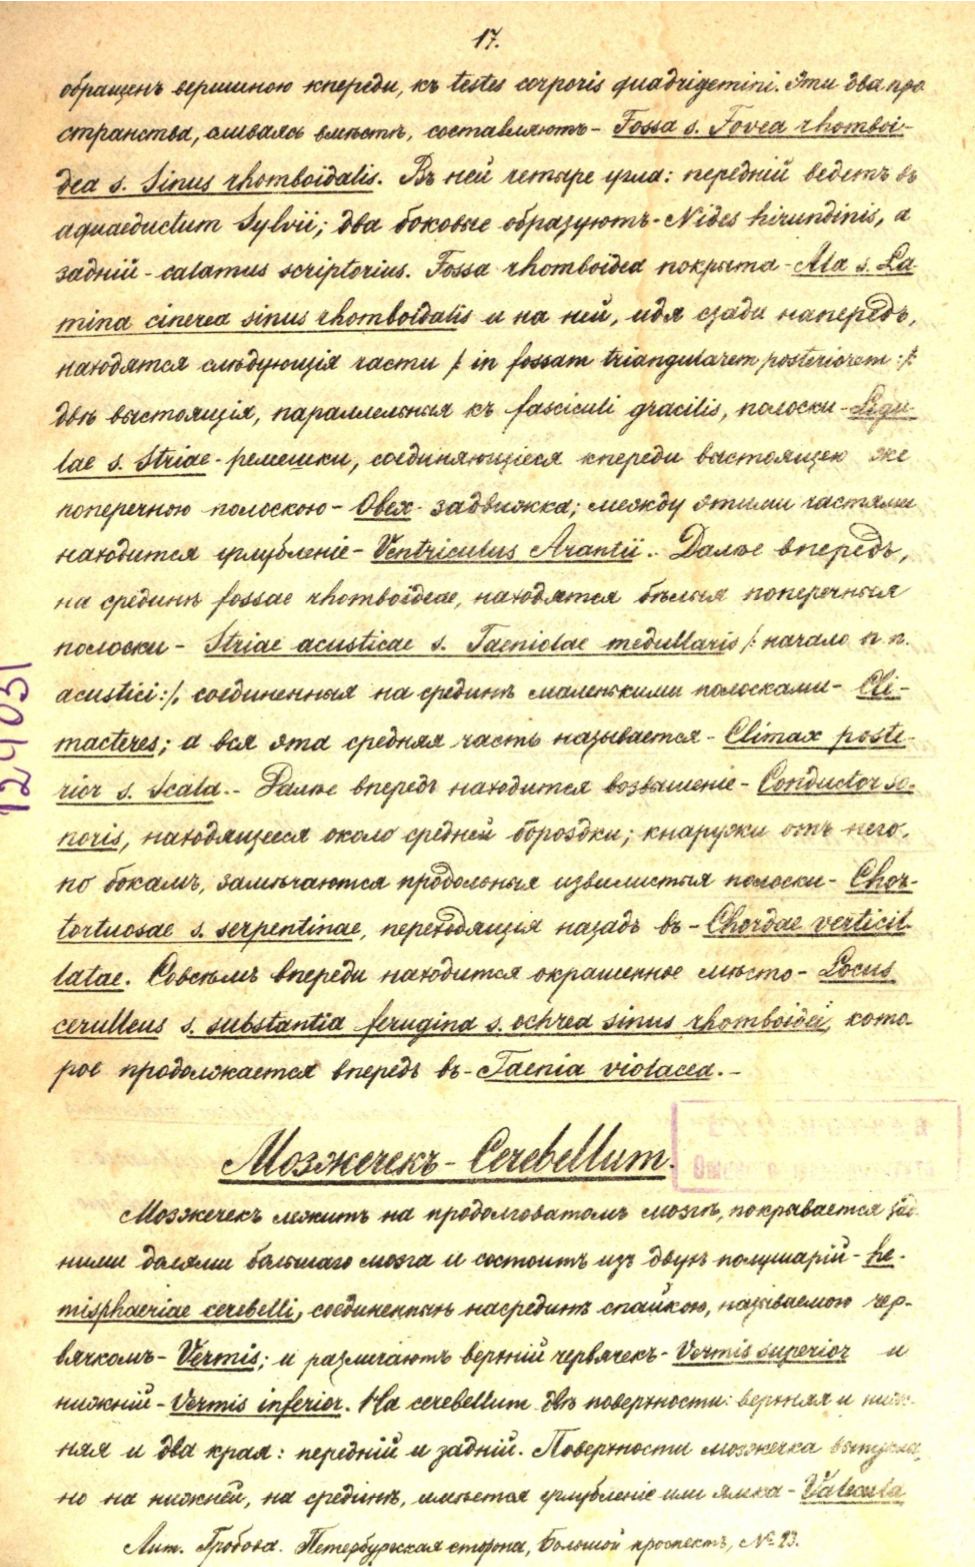 17.
обращенъ вершиною кпереди, къ testes corporis quadrigemini. Эти два про
странства, сливаясь вмѣстѣ, составляютъ - Fossa s. Fovea rhomboi-
dea s. Sinus rhomboidalis. Въ ней четыре угла: передній ведетъ въ
aquaeductum Sylvii; два боковые образуютъ - Nides hirundinis, а
задній - calamus scriptorius. Fossa rhomboidea покрыта - Ala s. La-
mina cinerea sinus rhomboidalis и на ней, идя сзади напередъ,
находятся слѣдующія части /: in fossam triangularem posteriorem :/:
двѣ выстоящія, параллельныя къ fasciculi gracilis, полоски - Ligu-
lae s. Striae - ремешки, соединяющіеся кпереди выстоящею же
поперечною полоскою - Obex - задвижка; между этими частями
находится углубленіе - Ventriculus Arantii. Далѣе впередъ,
на срединѣ fossae rhomboideae, находятся бѣлыя поперечныя
полоски - Striae acusticae s. Taeniolae medullaris /: начало n. n.
acustici :/, соединенныя на срединѣ маленькими полосками - Cli-
macteres; а вся эта средняя часть называется - Climax poste-
rior s. Scala. - Далѣе впередъ находится возвышеніе - Conductor so-
noris, находящееся около средней бороздки; кнаружи отъ него,
по бокамъ, замѣчаются продольныя извилистыя полоски - Chor-
tortuosae s. serpentinae, переходящія назадъ въ - Chordae verticil-
latae. Совсѣмъ впереди находится окрашенное мѣсто - Locus
cerulleus s. substantia ferugina s. ochrea sinus rhomboidei, кото-
рое продолжается впередъ въ - Taenia violacea. -
124031
Мозжечекъ - Cerebellum.
Мозжечекъ лежитъ на продолговатомъ мозгѣ, покрывается зад-
ними долями большаго мозга и состоитъ изъ двухъ полушарій - he-
misphaeriae cerebelli, соединенныхъ насрединѣ спайкою, называемою чер-
вячкомъ - Vermis; и различаютъ верхній червячекъ - Vermis superior и
нижній - Vermis inferior. На cerebellum двѣ поверхности: верхняя и ниж-
няя и два края: передній и задній. Поверхности мозжечка выпуклы,
но на нижней, на срединѣ, имѣется углубленіе или ямка - Valecula
Лит. Гробова. Петербургская сторона, Большой проспектъ, № 23.